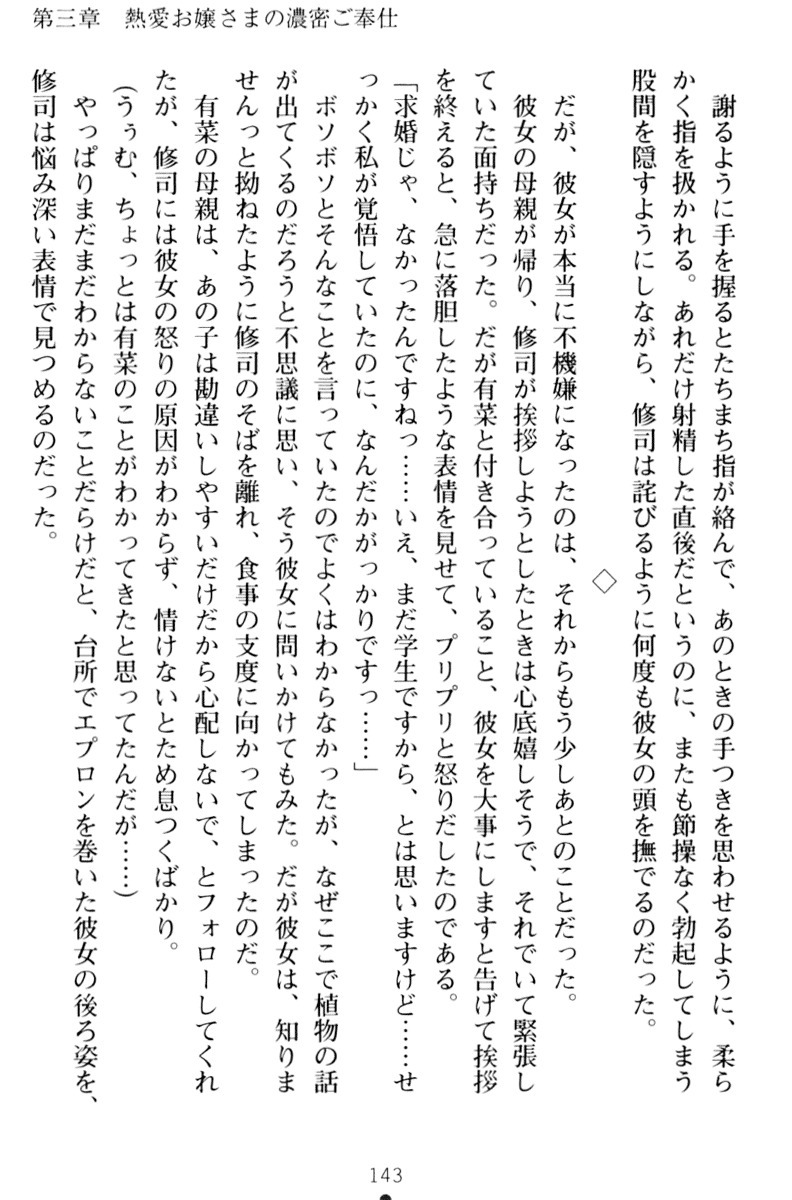 第三章　熱愛お嬢さまの濃密ご奉仕
謝るように手を握るとたちまち指が絡んで、あのときの手つきを思わせるように、柔ら
かく指を扱かれる。あれだけ射精した直後だというのに、またも節操なく勃起してしまう
股間を隠すようにしながら、修司は詫びるように何度も彼女の頭を撫でるのだった。
◇
だが、彼女が本当に不機嫌になったのは、それからもう少しあとのことだった。
彼女の母親が帰り、修司が挨拶しようとしたときは心底嬉しそうで、それでいて緊張し
ていた面持ちだった。だが有菜と付き合っていること、彼女を大事にしますと告げて挨拶
を終えると、急に落胆したような表情を見せて、プリプリと怒りだしたのである。
「求婚じゃ、なかったんですねっ……いえ、まだ学生ですから、とは思いますけど……せ
っかく私が覚悟していたのに、なんだかがっかりですっ……」
ボソボソとそんなことを言っていたのでよくはわからなかったが、なぜここで植物の話
が出てくるのだろうと不思議に思い、そう彼女に問いかけてもみた。だが彼女は、知りま
せんっと拗ねたように修司のそばを離れ、食事の支度に向かってしまったのだ。
有菜の母親は、あの子は勘違いしやすいだけだから心配しないで、とフォローしてくれ
たが、修司には彼女の怒りの原因がわからず、情けないとため息つくばかり。
(うぅむ、ちょっとは有菜のことがわかってきたと思ってたんだが……)
やっぱりまだまだわからないことだらけだと、台所でエプロンを巻いた彼女の後ろ姿を、
修司は悩み深い表情で見つめるのだった。
143